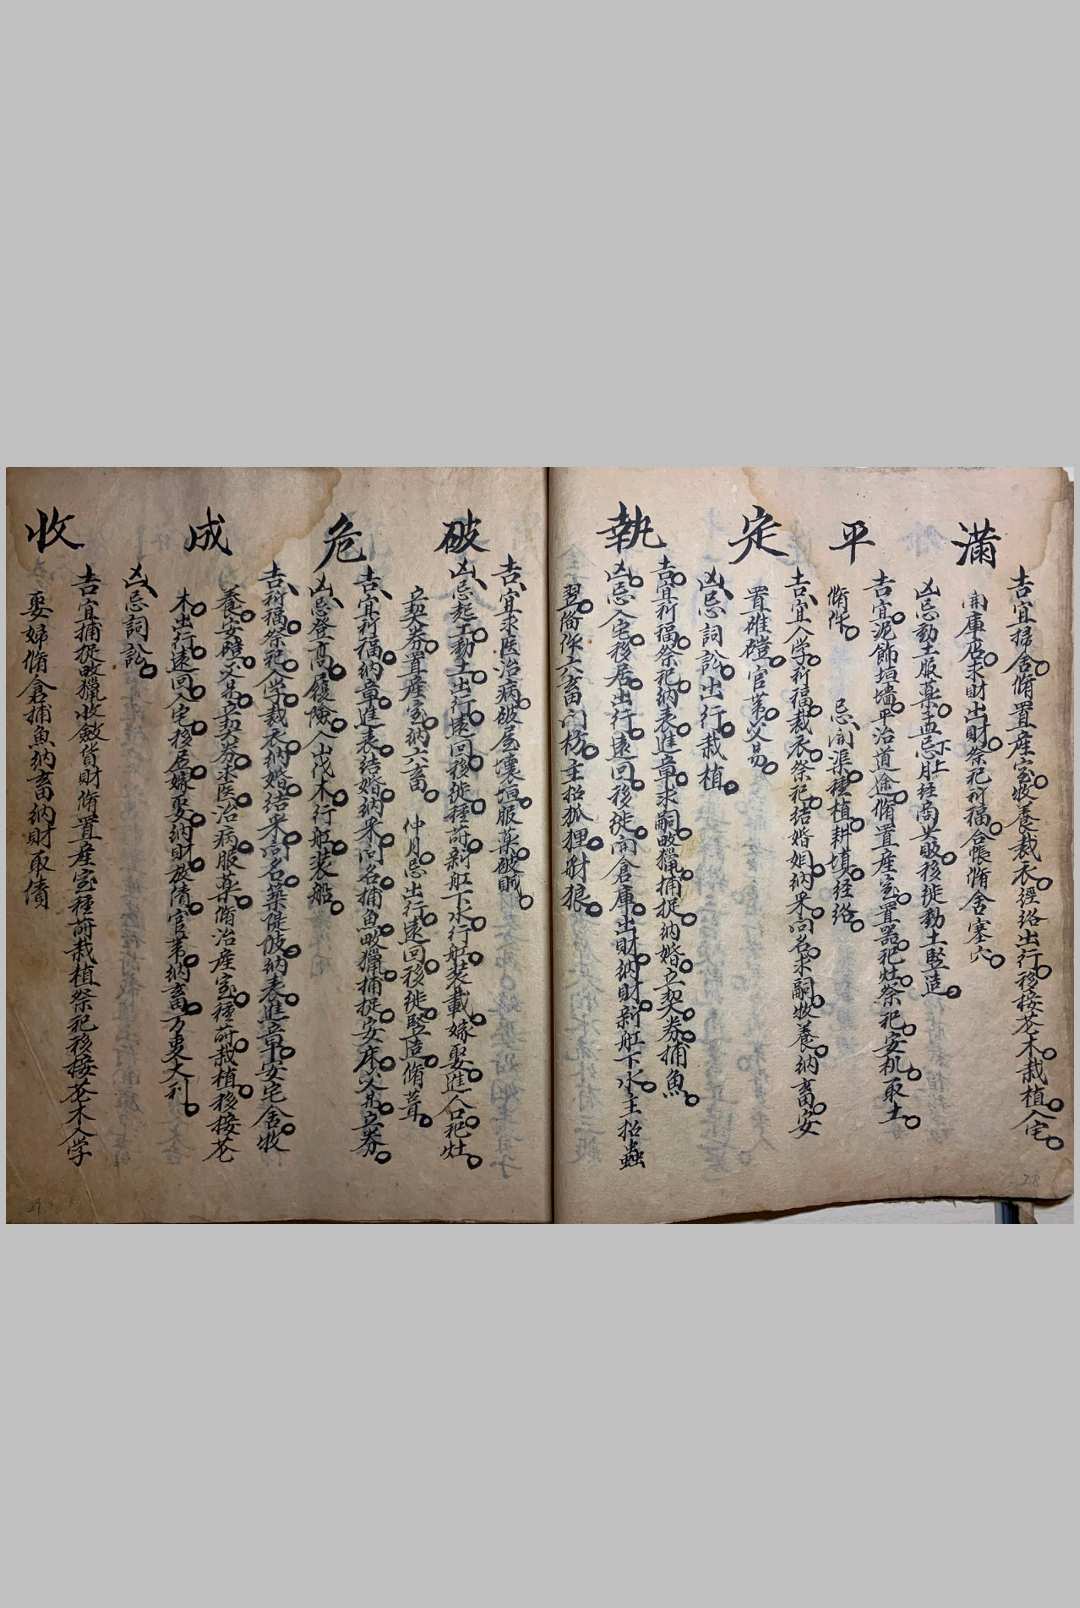 滿
吉宜掃舍脩置産室牧養裁衣經絡出行移接花木栽植入宅
開庫店求財出財祭祀祈福合帳脩舍塞穴
凶忌動土服藥上
平
吉宜泥飾垣墻平治道途脩置産室置器祀灶祭祀安机取土
脩作 忌開渠種植耕填経絡
定
吉宜入学祈福裁衣祭祀結婚姻納采问名求嗣牧養納畜安
置碓磑官第交易
凶忌詞訟出行栽植
執
吉宜祈福祭祀納表進章求嗣畋獵捕捉納婚立契券捕魚
凶忌入宅移居出行遠回移徙開倉庫出財納財新舡下水主招蟲
六畜主招狐狸豺狼
破
吉宜求医治病破屋壞垣服薬破賊
凶忌起工動土出行遠回移徙種莳新舡下水行舡装載嫁娶進人合祀灶
立契券置産室納六畜 仲月忌出行遠回移徙竪造脩葺
危
吉宜祈福納章進表結婚納采问名捕魚畋獵捕捉安床交易立券
凶忌登高履險入山伐木行舡装船
成
吉祈福祭祀入学裁衣納婚結采问名築陂納表進章安宅舍牧
養安磑交易立契券求医治病服薬脩治産室種莳栽植移接花
木出行遠回入宅移居嫁娶納財官第納畜万事大利
凶忌詞訟
收
吉宜捕捉畋獵收斂貨財脩置産室種莳栽植祭祀移接花木入学
娶婦脩倉捕魚納畜納財取債
28
29